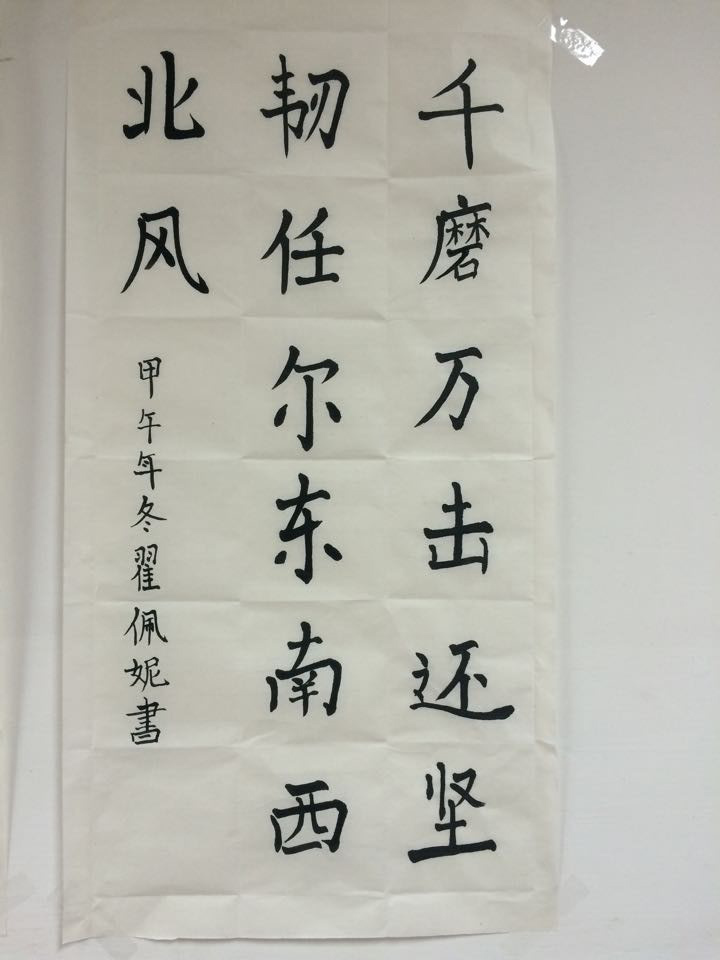 千磨万击还坚
韧任尔东南西
北风
甲午年冬翟佩妮書